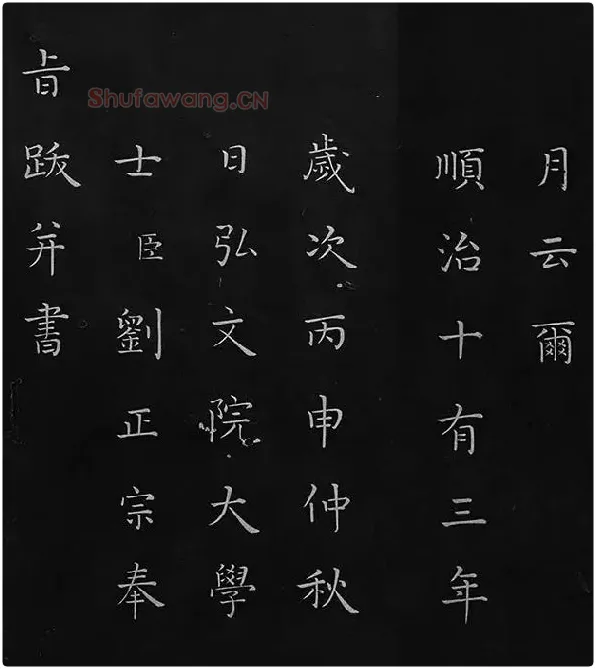 月云爾
順治十有三年
歲次丙申仲秋
日弘文院大學
士臣劉正宗奉
旨跋并書
Shufawang.CN